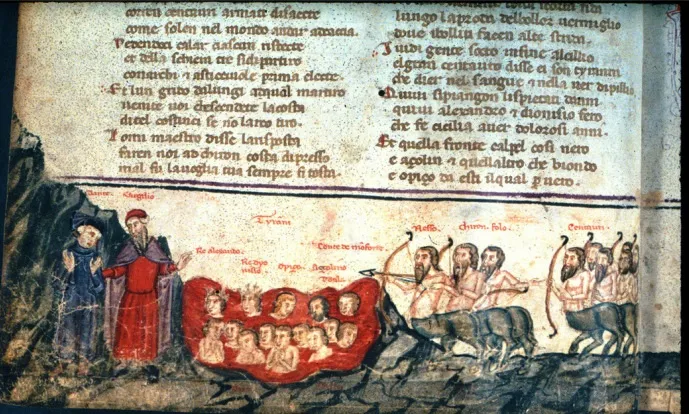 corren centauri armati di saecte
come solen nel mondo andar a caccia.
Vedendoci calar ciascun ristecte
et della schiera tre si dipartiro
con archi e asticciuole prima electe.
Et lun grido da lungi a qual martiro
venite voi che scendete la costa
ditel costinci se no larco tiro.
Lo mi maestro disse la risposta
faren noi ad chiron costa di presso
mal fu la voglia tua sempre si tosta.
lungo la proda del bollor vermiglio
dove i bolliti facen alte strida.
I vidi gente socto infino al ciglio
el gran centauro disse ei son tyranni
che dier nel sangue e nella ver di piglio
Quivi si piangon li spietati danni
quivi alexandro e dionisio fero
che fe cicilia aver dolorosi anni.
Et quella fronte cal pel cosi nero
e açolin e quellaltro che biondo
e opiço da esti il qual p vero.
Dante. Virgilio
Tyrani
Re alexandro.
Re dyo
nisio
Opiço.
Nesso. Chiron. folo. Centauri.